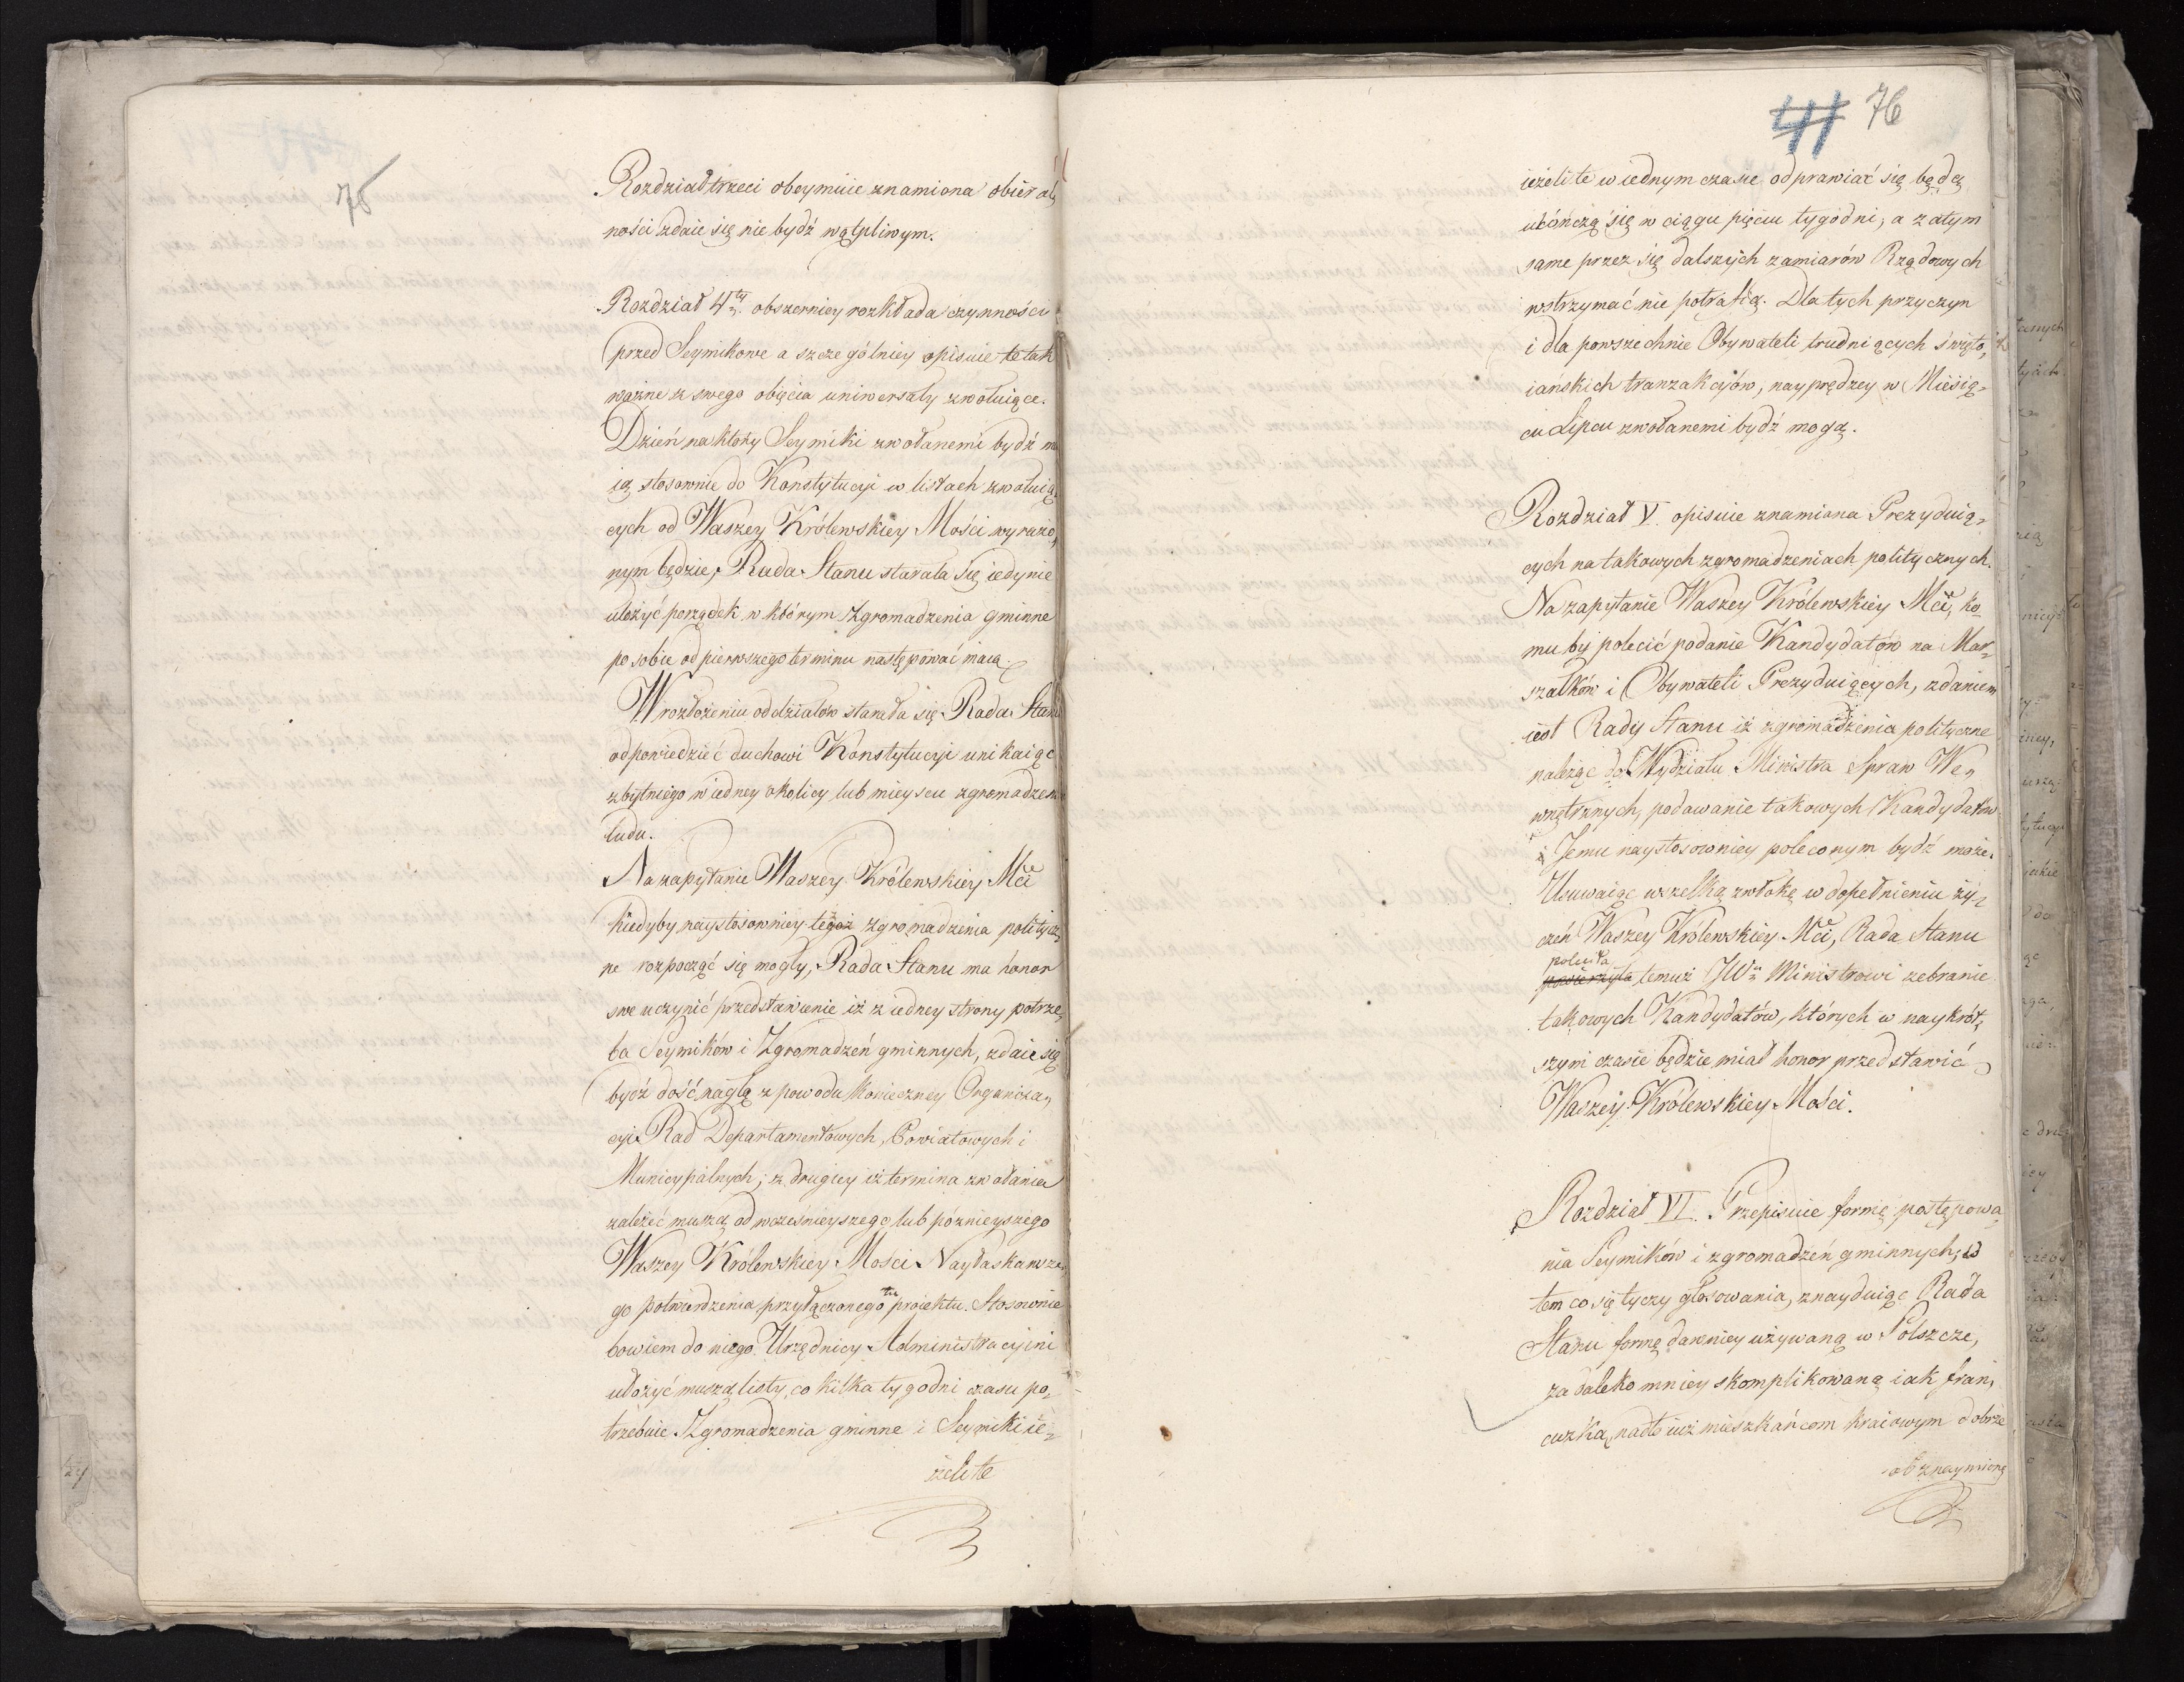 75
Rozdział trzeci obeymuie znamiona obieral„
ności zdaie się nie bydź wątpliwym.
Rozdział 4ty obszerniey rozkłada czynności
przed Seymikowe a szczególniey opisuie te tak
ważne z swego obięcia uniwersały zwołuiące.
Dzień na który Seymiki zwołanemi bydź ma
ią stosownie do Konstytucyi w listach zwołuią„
cych od Waszey Królewskiey Mości wyrażo„
nym będzie, Rada Stanu starała się iedynie
ułożyć porządek w którym Zgromadzenia gminne
po sobie od pierwszego terminu następować maią.
W rozłożeniu oddziałów starała się Rada Stanu
odpowiedzieć duchowi Konstytucyi unikaiąc
zbytniego w iedney okolicy lub mieyscu zgromadzenia
ludu.
Na zapytanie Waszey Królewskiey Mci
kiedyby naystosowniey tegoż zgromadzenia politycz„
ne rozpocząć się mogły, Rada Stanu ma honor
swe uczynić przedstawienie iż z iedney strony potrze„
ba Seymików i Zgromadzeń gminnych, zdaie się
bydź dość nagłą z powodu konieczney Organiza„
cyi Rad Departamentowych, Powiatowych i
Municypalnych; z drugiey iż termina zwołania
zależeć muszą od wcześnieyszego lub póznieyszego
Waszey Królewskiey Mości Nayłaskawsze„
go potwierdzenia przyłączonego tu proiektu. Stosownie
bowiem do niego Urzędnicy Administracyini
ułożyć muszą listy, co kilka tygodni czasu po„
trzebuie. Zgromadzenia gminne i Seymiki ie„
żeli te
41 76
ieżeli te w iednym czasie odprawiać się będą
ukończą się w ciągu pięciu tygodni, a zatym
same przez się dalszych zamiarów Rządowych
wstrzymać nie potrafią. Dla tych przyczyn
i dla powszechnie Obywateli trudniących święto„
iańskich tranzakcyów, nayprędzey w Miesią„
cu Lipcu zwołanemi bydź mogą.
Rozdział V. opisuie znamiona Prezyduią„
cych na takowych zgromadzeniach politycznych.
Na zapytanie Waszey Królewskiey Mci, ko
mu by polecić podanie Kandydatów na Mar„
szałków i Obywateli Prezyduiących, zdaniem
iest Rady Stanu iż zgromadzenia polityczne
należąc do Wydziału Ministra Spraw We„
wnętrznych, podawanie takowych Kandydatów
i Jemu naystosowniey poleconym bydź może.
Usuwaiąc wszelką zwłokę w dopełnieniu ży„
czeń Waszey Królewskiey Mci, Rada Stanu
poleciła
powierzyła temuż JW. Ministrowi zebranie
takowych Kandydatów, których w naykrót„
szym czasie będzie miał honor przedstawić
Waszey Królewskiey Mości.
Rozdział VI. Przepisuie formę postępowa„
nia Seymików i zgromadzeń gminnych, w
tem co się tyczy głosowania, znayduiąc Rada
Stanu formę dawniey używaną w Polszcze,
za daleko mniey skomplikowaną iak fran„
cuzka, nadto iuż mieszkańcom kraiowym dobrze
obznaymioną